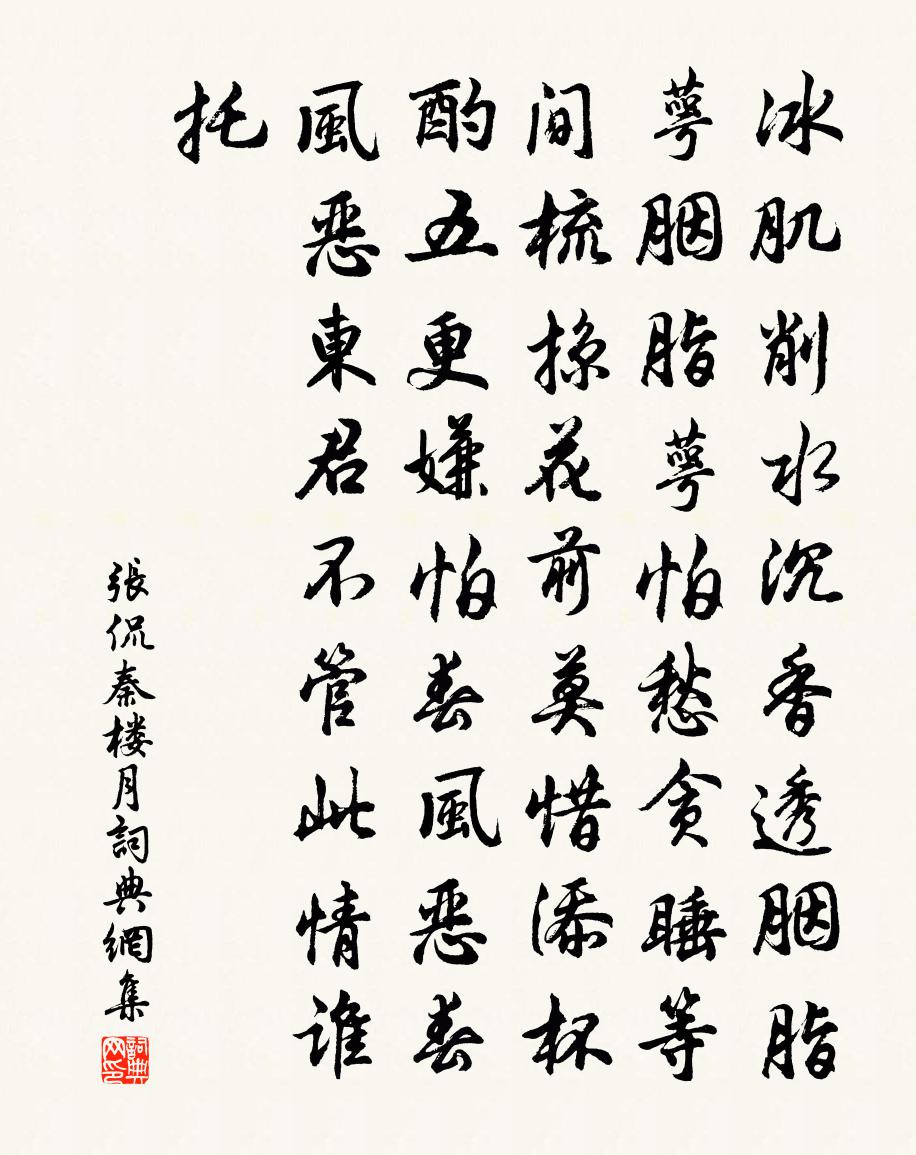 冰肌削水沉香透胭脂
萼胭脂萼怕愁貪睡等
间梳掠花前莫惜添杯
酌五更嫌怕春風恶春
風恶東君不管此情谁
托
張侃秦楼月詞典網集
詞典网印